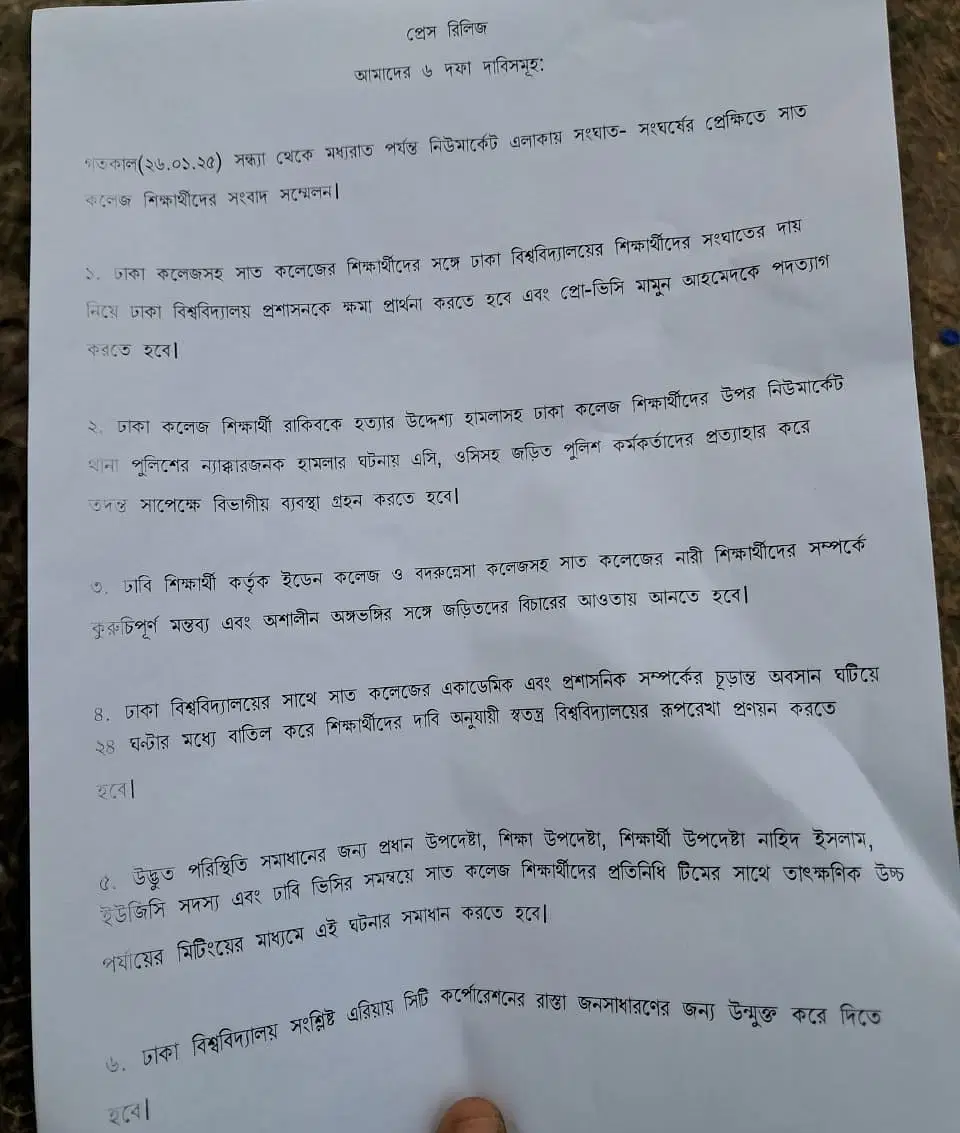 প্রেস রিলিজ
আমাদের ৬ দফা দাবিসমূহ:
গতকাল(২৬.০১.২৫) সন্ধ্যা থেকে মধ্যরাত পর্যন্ত নিউমার্কেট এলাকায় সংঘাত- সংঘর্ষের প্রেক্ষিতে সাত
কলেজ শিক্ষার্থীদের সংবাদ সম্মেলন|
১. ঢাকা কলেজসহ সাত কলেজের শিক্ষার্থীদের সঙ্গে ঢাকা বিশ্ববিদ্যালয়ের শিক্ষার্থীদের সংঘাতের দায়
নিয়ে ঢাকা বিশ্ববিদ্যালয় প্রশাসনকে ক্ষমা প্রার্থনা করতে হবে এবং প্রো-ভিসি মামুন আহমেদকে পদত্যাগ
করতে হবে|
২. ঢাকা কলেজ শিক্ষার্থী রাকিবকে হত্যার উদ্দেশ্য হামলাসহ ঢাকা কলেজ শিক্ষার্থীদের উপর নিউমার্কেট
থানা পুলিশের ন্যাক্কারজনক হামলার ঘটনায় এসি, ওসিসহ জড়িত পুলিশ কর্মকর্তাদের প্রত্যাহার করে
তদন্ত সাপেক্ষে বিভাগীয় ব্যবস্থা গ্রহন করতে হবে|
৩. ঢাবি শিক্ষার্থী কর্তৃক ইডেন কলেজ ও বদরুন্নেসা কলেজসহ সাত কলেজের নারী শিক্ষার্থীদের সম্পর্কে
কুরুচিপূর্ন মন্তব্য এবং অশালীন অঙ্গভঙ্গির সঙ্গে জড়িতদের বিচারের আওতায় আনতে হবে|
৪. ঢাকা বিশ্ববিদ্যালয়ের সাথে সাত কলেজের একাডেমিক এবং প্রশাসনিক সম্পর্কের চূড়ান্ত অবসান ঘটিয়ে
২৪ ঘন্টার মধ্যে বাতিল করে শিক্ষার্থীদের দাবি অনুযায়ী স্বতন্ত্র বিশ্ববিদ্যালয়ের রূপরেখা প্রণয়ন করতে
হবে|
৫. উদ্ভুত পরিস্থিতি সমাধানের জন্য প্রধান উপদেষ্টা, শিক্ষা উপদেষ্টা, শিক্ষার্থী উপদেষ্টা নাহিদ ইসলাম,
ইউজিসি সদস্য এবং ঢাবি ভিসির সমন্বয়ে সাত কলেজ শিক্ষার্থীদের প্রতিনিধি টিমের সাথে তাৎক্ষনিক উচ্চ
পর্যায়ের মিটিংয়ের মাধ্যমে এই ঘটনার সমাধান করতে হবে|
৬. ঢাকা বিশ্ববিদ্যালয় সংশ্লিষ্ট এরিয়ায় সিটি কর্পোরেশনের রাস্তা জনসাধারণের জন্য উন্মুক্ত করে দিতে
হবে|